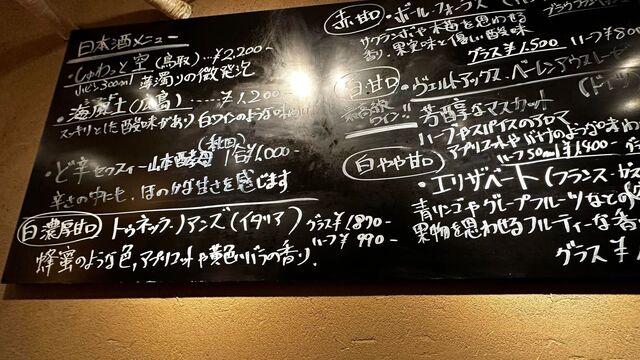 日本酒メニュー
・しゅわっと空(鳥取)…¥2,200-
小ビン300ml 薄濁りの微発泡
・海風土(広島)……¥1,200-
スッキリとした酸味があり白ワインのような味わい
(秋田)
・ど辛 セクスィー山本酵母 1合¥1,000-
辛さの中にも、ほのかな甘さを感じます
白濃厚甘口 トゥネッラ・ノアンズ(イタリア) グラス¥1,890-
ハーフ¥990-
蜂蜜のような色、アプリコットや黄色いバラの香り.
赤甘口 ・ポール・フォース
サクランボや木苺を思わせる
香り.果実味と優しい酸味
グラス¥1,500 ハーフ¥800
白:甘口 ・ヴェルトアックス・ベーレンアウスレーゼ
貴腐ワイン!! 芳醇なマスカット (ドイツ
ハーブやスパイスのアロマ
アプリコットやバナナのような味わ
ハーフ50ml ¥1,400-
白やや甘口
・エリザベート(フランス・ガス
青リンゴやグレープフルーツなどの
果物を思わせるフルーティーな香
グラス¥